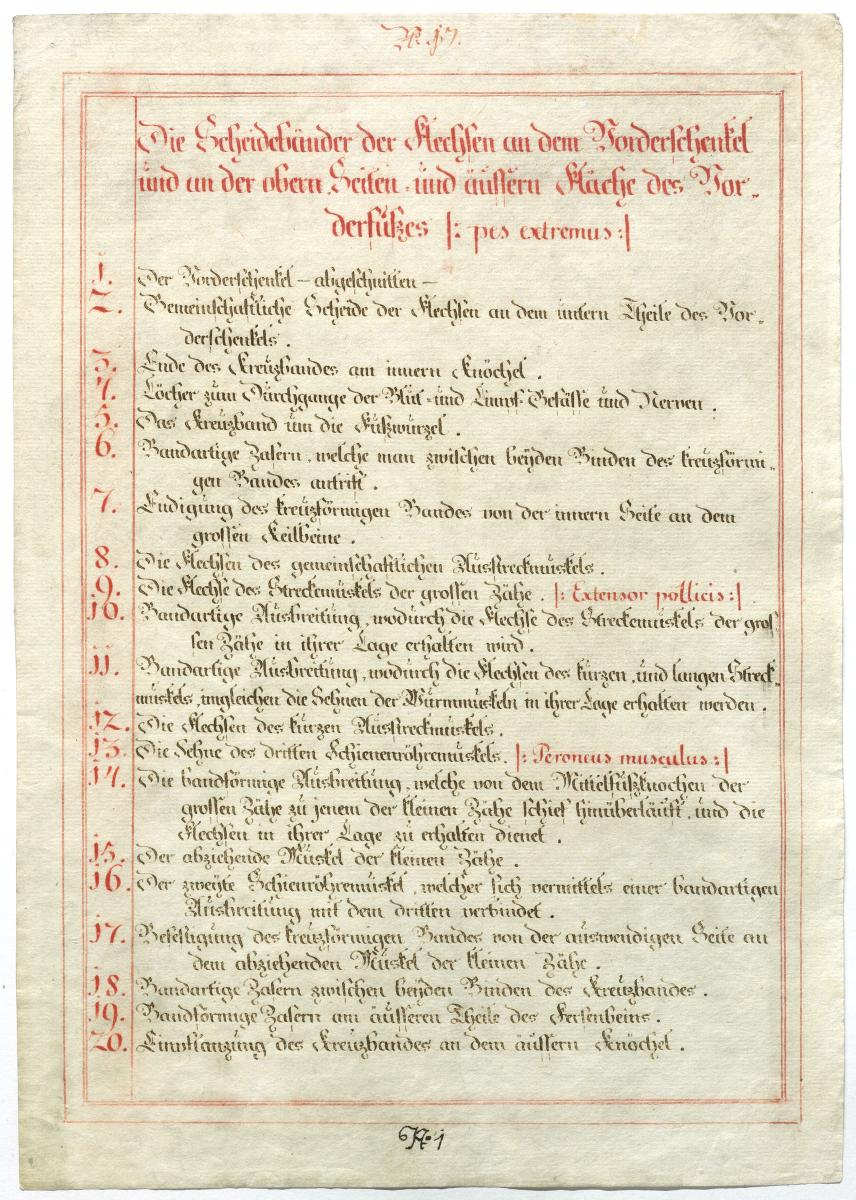 N. 17.
Die Scheidebänder der Flechsen an dem Vorderschenkel
und an der obern, Seiten- und äussern Fläche des Vor-
derfußes |: pes extremus :|
1. Der Vorderschenkel – abgeschnitten –
2. Gemeinschaftliche Scheide der Flechsen an dem untern Theile des Vor-
derschenkels.
3. Ende des Kreuzbandes am innern Knöchel.
4. Löcher zum Durchgange der Blut- und Limpf-Gefässe und Nerven.
5. Das Kreuzband um die Fußwurzel.
6. Bandartige Zasern, welche man zwischen beyden Binden des kreuzförmi-
gen Bandes antrift.
7. Endigung des kreuzförmigen Bandes von der innern Seite an dem
grossen Keilbeine.
8. Die Flechsen des gemeinschaftlichen Ausstreckmuskels.
9. Die Flechse des Streckemuskels der grossen Zähe. |: Extensor pollicis :|
10. Bandartige Ausbreitung, wodurch die Flechse des Streckemuskels der gros-
sen Zähe in ihrer Lage erhalten wird.
11. Bandartige Ausbreitung, wodurch die Flechsen des kurzen, und langen Streck-
muskels, imgleichen die Sehnen der Wurmmuskeln in ihrer Lage erhalten werden.
12. Die Flechsen des kurzen Ausstreckmuskels.
13. Die Sehne des dritten Schienenröhremuskels. |: Peroneus musculus :|
14. Die bandförmige Ausbreitung, welche von dem Mittelfußknochen der
grossen Zähe zu jenem der kleinen Zähe schief hinüberläuft, und die
Flechsen in ihrer Lage zu erhalten dienet.
15. Der abziehende Muskel der kleinen Zähe.
16. Der zweyte Schienröhremuskel, welcher sich vermittels einer bandartigen
Ausbreitung mit dem dritten verbindet.
17. Befestigung des kreuzförmigen Bandes von der auswendigen Seite an
dem abziehenden Muskel der kleinen Zähe.
18. Bandartige Zasern zwischen beyden Binden des Kreuzbandes.
19. Bandförmige Zasern am äusseren Theile des Fersenbeins.
20. Einpflanzung des Kreuzbandes an dem äussern Knöchel.
N. 1